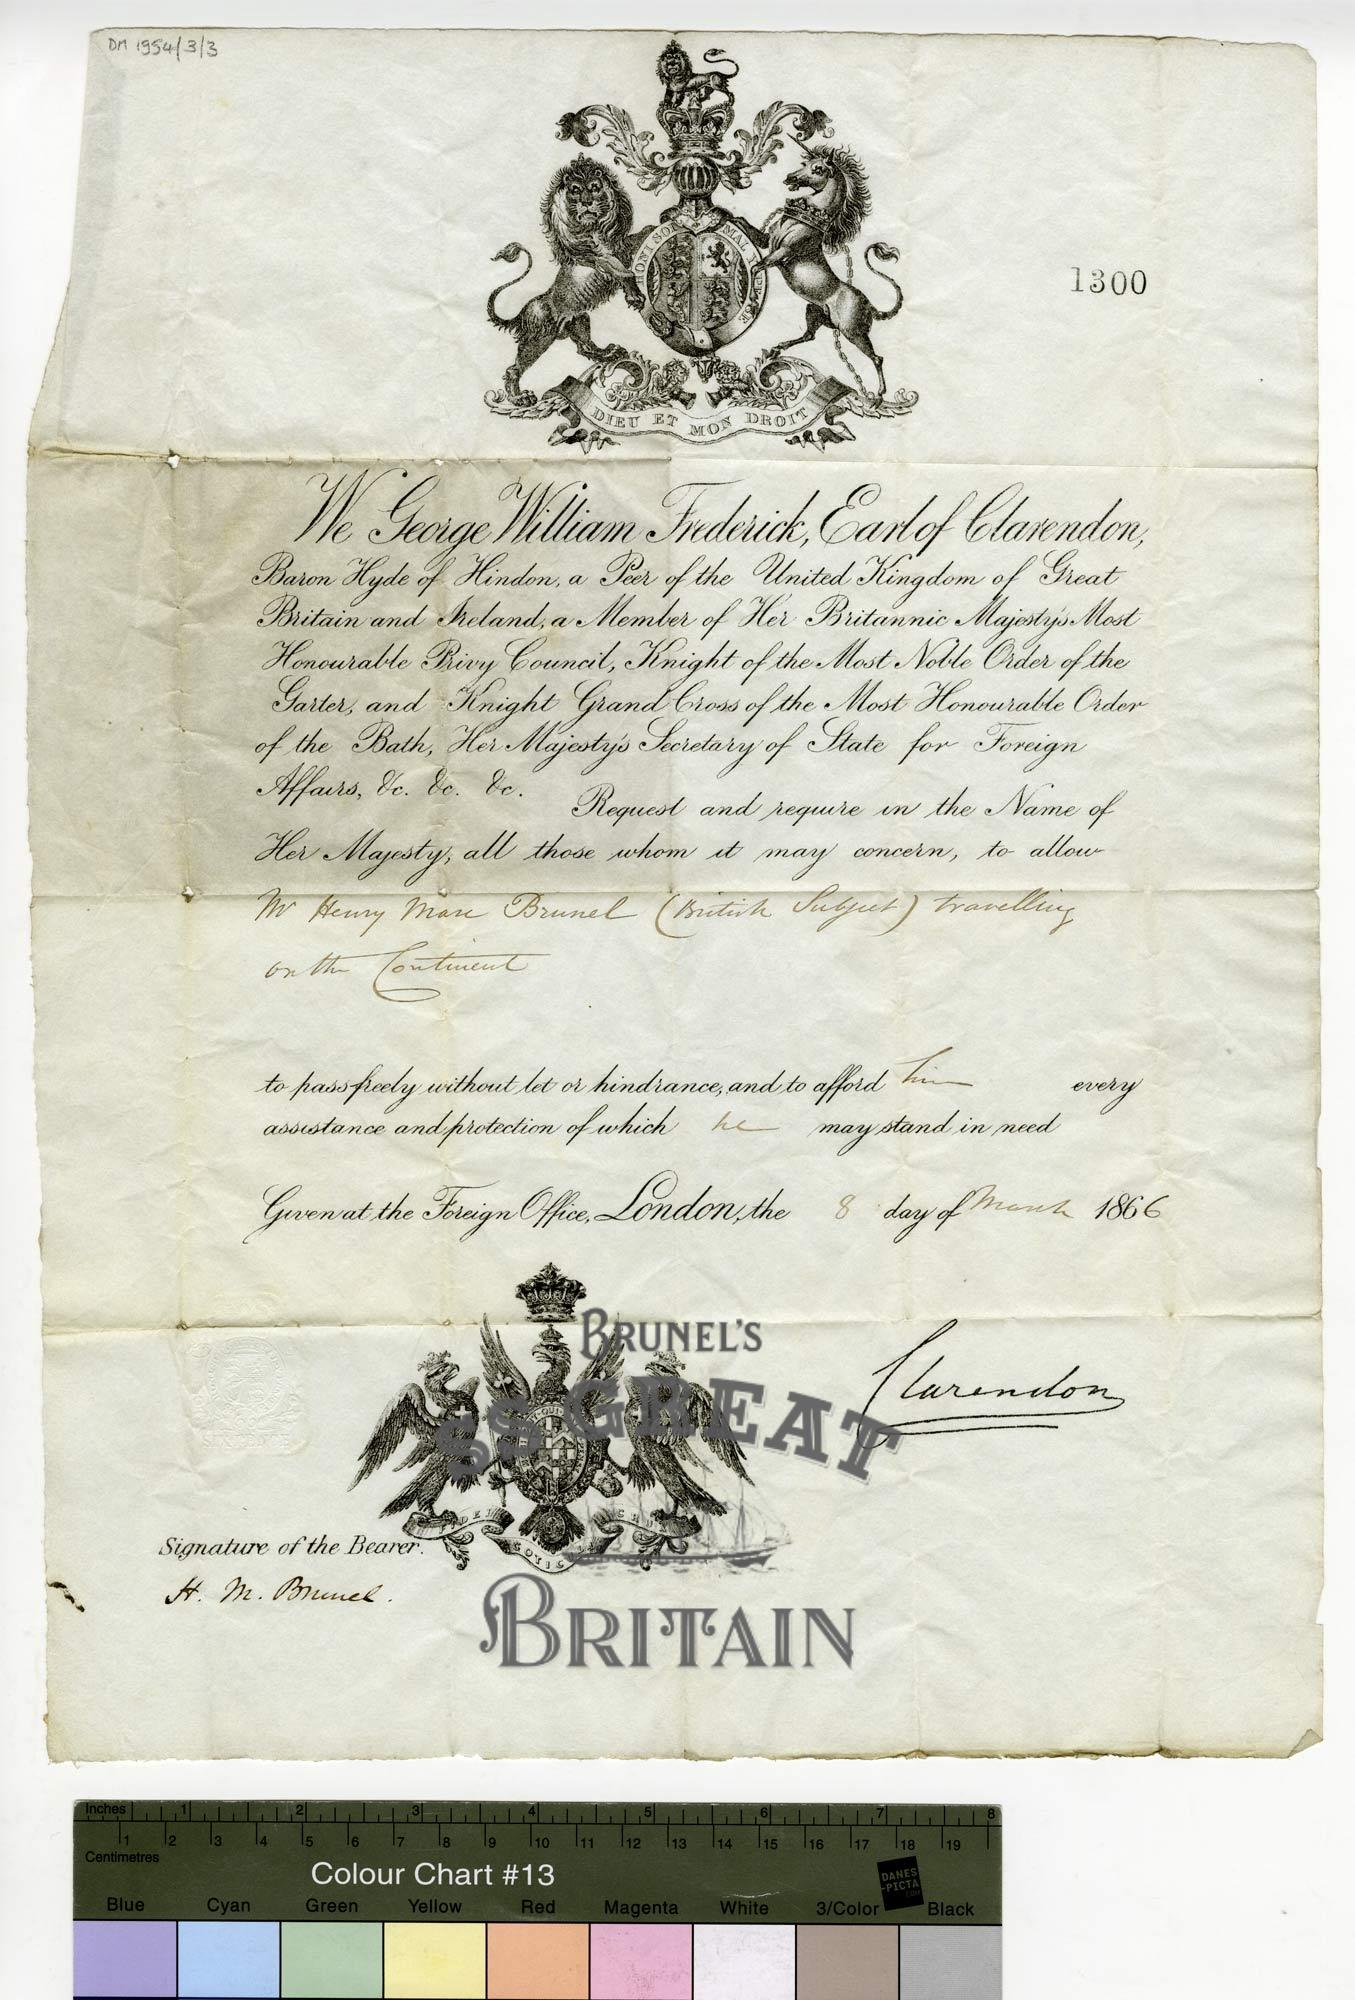 DM 1954/3/3
HONI SOIT
MAL Y PENSE
1300
DIEU ET MON DROIT
We George William Frederick, Earl of Clarendon,
Baron Hyde of Hindon, a Peer of the United Kingdom of Great
Britain and Ireland, a Member of Her Britannic Majesty's Most
Honourable Privy Council, Knight of the Most Noble Order of the
Garter, and Knight Grand Cross of the Most Honourable Order
of the Bath, Her Majesty's Secretary of State for Foreign
Affairs, &c. &c. &c.
Request and require in the Name of
Her Majesty, all those whom it may concern, to allow
Mr Henry Marc Brunel (British Subject) travelling
on the Continent
to pass freely without let or hindrance, and to afford him every
assistance and protection of which he may stand in need
Given at the Foreign Office, London, the 8 day of March 1866
BRUNEL'S
SS GREAT
BRITAIN
Clarendon
SIXPENCE
FIDEI COTICULA CRUX
Signature of the Bearer.
H. M. Brunel.
Inches 1 2 3 4 5 6 7 8
1 2 3 4 5 6 7 8 9 10 11 12 13 14 15 16 17 18 19
Centimetres
Colour Chart #13
DANES
-PICTA
.COM
Blue Cyan Green Yellow Red Magenta White 3/Color Black